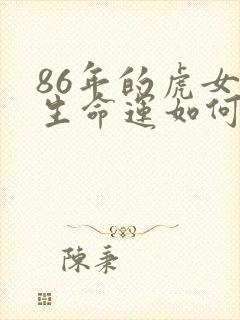 86年的虎女
生命运如何
陳秉